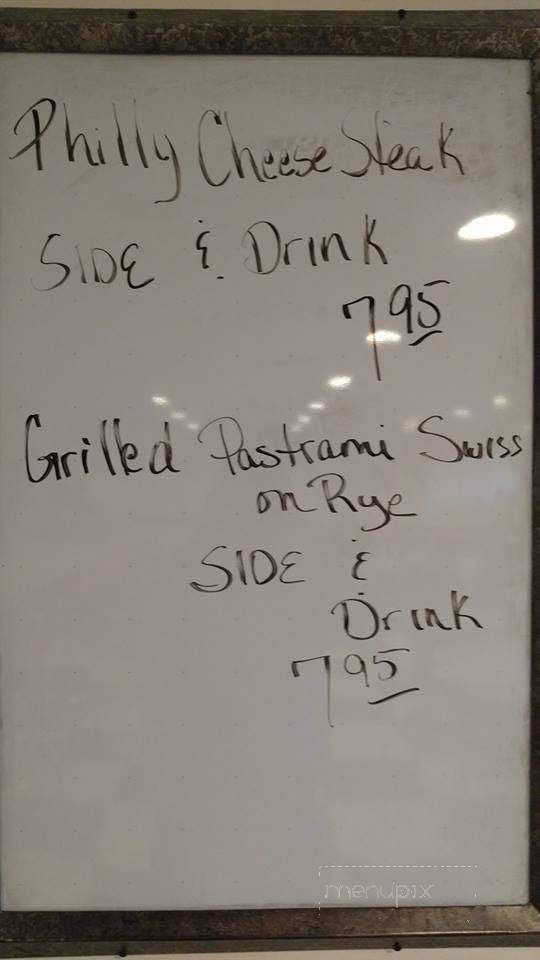 Philly Cheese Steak
SIDE & Drink
7 95
Grilled Pastrami Swiss
on Rye
SIDE &
Drink
7 95
menupix